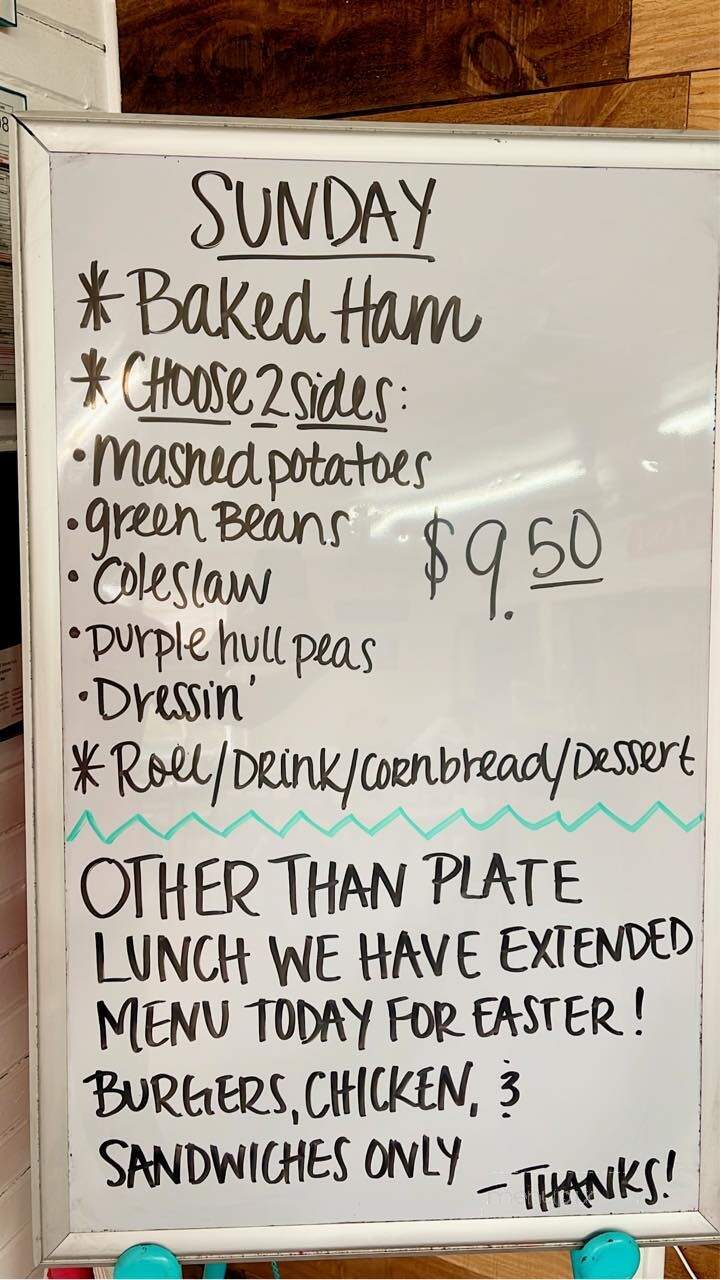 SUNDAY
* Baked Ham
* CHOOSE 2 sides:
• mashed potatoes
• green Beans
$9.50
• Coleslaw
• purple hull peas
• Dressin'
* Roll/DRink/CORnbread/Dessert
OTHER THAN PLATE
LUNCH WE HAVE EXTENDED
MENU TODAY FOR EASTER!
BURGERS, CHICKEN, &
SANDWICHES ONLY
- THANKS!